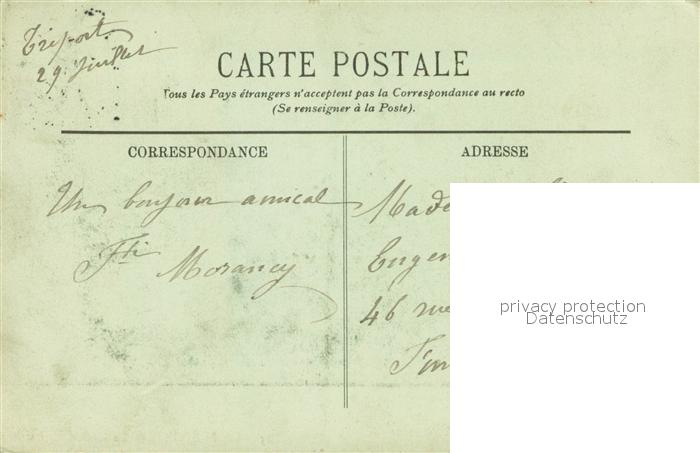 Tréport
29 Juillet
CARTE POSTALE
Tous les Pays étrangers n'acceptent pas la Correspondance au recto
(Se renseigner à la Poste).
CORRESPONDANCE
ADRESSE
Un bonjour amical
Morancy
Made
Eugen
46 rue
privacy protection
Datenschutz